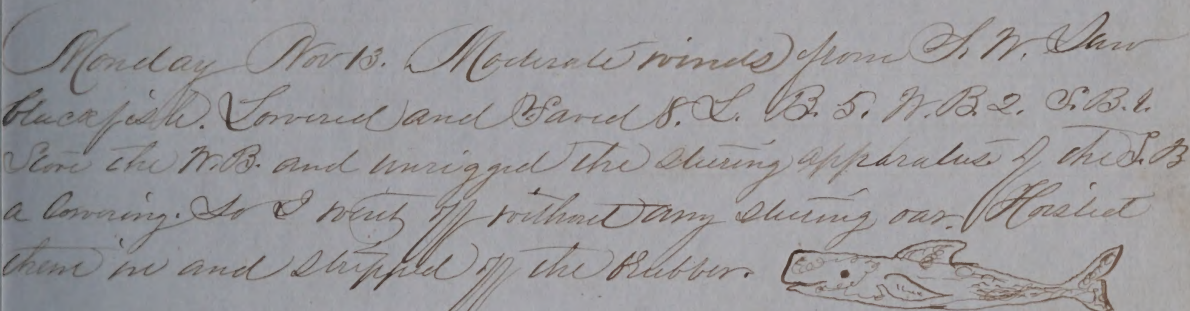 Monday Nov 13. Moderate winds from S. W. Saw
blackfish. Lowered and Saved 8. L. B. 5. W. B. 2. S. B. 1.
Stove the W. B. and unrigged the steering apparatus of the S. B
a lowering. So I went off without any steering oar. Hoisted
them in and stripped off the blubber.